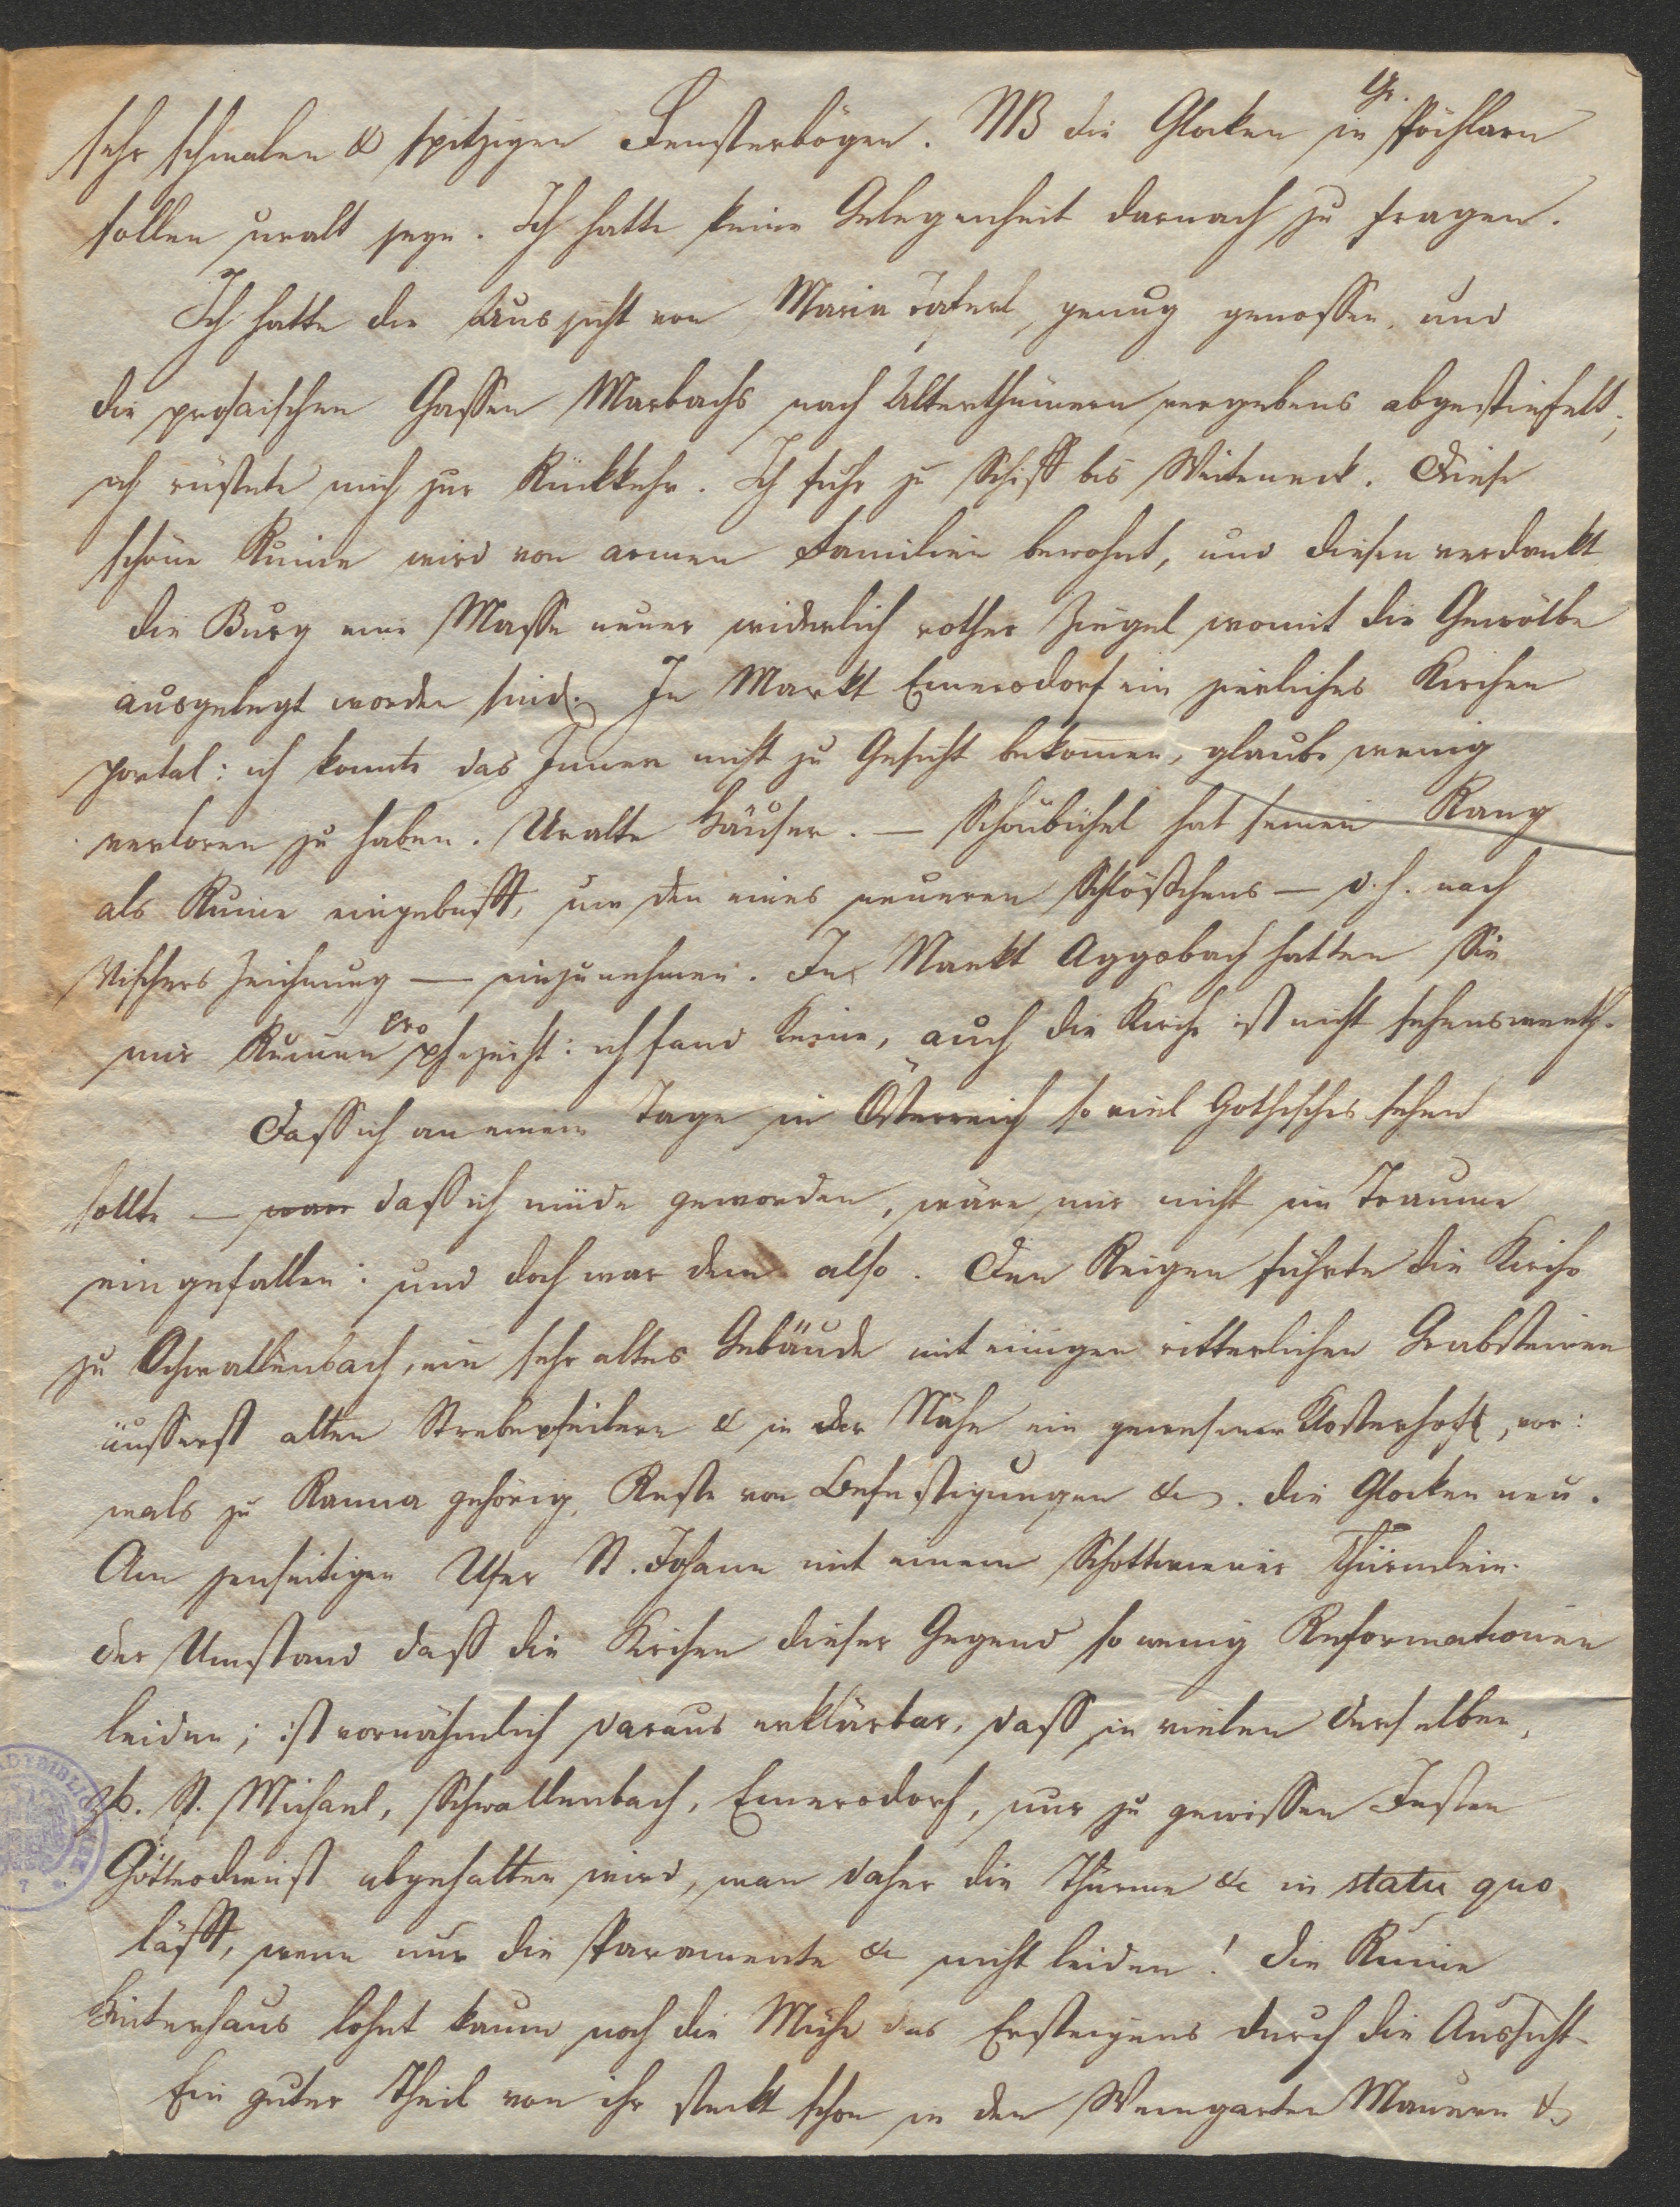 sehr schmalen & spitzigen Fensterbögen. NB die Glocken in Gr. Pöchlarn
sollen uralt seyn. Ich hatte keine Gelegenheit darnach zu fragen.
Ich hatte die Aussicht von Maria Taferl, genug genossen, und
die prosaischen Gassen Marbachs nach Alterthümern vergebens abgestiefelt;
ich rüstete mich zur Rückkehr. Ich fuhr zu Schiff bis Weiteneck. Diese
schöne Ruine wird von armen Familien bewohnt, und diesen verdankt
die Burg eine Masse neuer widerlich rother Ziegel womit die Gewölbe
ausgelegt worden sind. In Markt Emersdorf ein zierliches Kirchen
portal: ich konnte das Innere nicht zu Gesicht bekommen, glaube wenig
verloren zu haben. Uralte Häuser. — Schönbühel hat seinen Rang
als Ruine eingebüßt, um den eines neueren Schlößchens — d. h. nach
Vischers Zeichnung — einzunehmen. In Markt Aggsbach hatten Sie
mir Ruinen prophezeiht: ich fand keine, auch die Kirche ist nicht sehenswerth.
Dass ich an einem Tage in Österreich so viel Gothisches sehen
sollte — war dass ich müde geworden, wäre mir nicht im Traume
eingefallen: und doch war dem also. Den Reigen führte die Kirche
zu Schwallenbach, ein sehr altes Gebäude mit einigen ritterlichen Grabsteinen
äusserst alten Strebepfeilern & in der Nähe ein gewesener Klosterhof, vor:
mals zu Ranna gehörig, Reste von Befestigungen &c. die Glocken neu.
Am jenseitigen Ufer St. Johann mit einem Schottwiener Thürmlein.
der Umstand dass die Kirchen dieser Gegend so wenig Reformationen
leiden; ist vornähmlich daraus erklärbar, dass in vielen derselben,
zb. St. Michael, Schwallenbach, Emersdorf, nur zu gewissen Festen
Gottesdienst abgehalten wird, man daher die Thürme &c in statu quo
läßt, wenn nur die Paramente &c nicht leiden! die Ruine
Hinterhaus lohnt kaum noch die Mühe des Ersteigens durch die Aussicht.
Ein guter Theil von ihr steckt schon in den Weingarten Mauern &